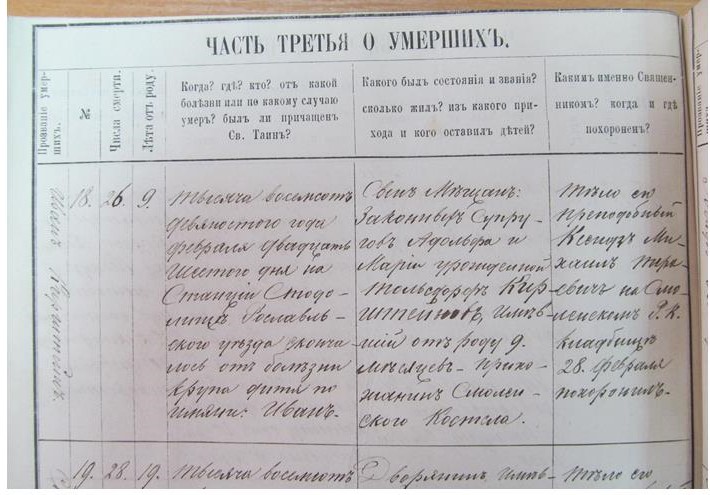 ЧАСТЬ ТРЕТЬЯ О УМЕРШИХЪ.
Прозваніе умер-
шихъ.
№
Числа смерти.
Лѣта отъ роду.
Когда? гдѣ? кто? отъ какой
болѣзни или по какому случаю
умеръ? былъ ли причащенъ
Св. Таинъ?
Какого былъ состоянія и званія?
сколько жилъ? изъ какого при-
хода и кого оставилъ дѣтей?
Какимъ именно Священ-
никомъ? когда и гдѣ
похороненъ?
Прозваніе умер-
Иванъ
18.
26
9.
тысяча восемсотъ
девяностого года
февраля двадцать
шестого дня на
Станціи Стодо-
лищъ Рославль-
скаго уѣзда сконча
лось отъ болѣзни
крупа дитя по
имяни: Иванъ.
Сынъ Мѣщан:
Законныхъ Супру-
говъ Адольфа и
Маріи урожденной
Кир-
штейновъ, имѣв-
шій отъ роду 9.
мѣсяцевъ. Прихо-
жанинъ Смолен-
ского Костела.
тѣло его
преподобный
Ксендзъ Ми-
хаилъ
на Смо-
ленскомъ Р. К.
Кладбищѣ
28. февраля
похоронилъ.
19.
28.
19.
тысяча восемсотъ
Дворянинъ, имѣв-
тѣло его